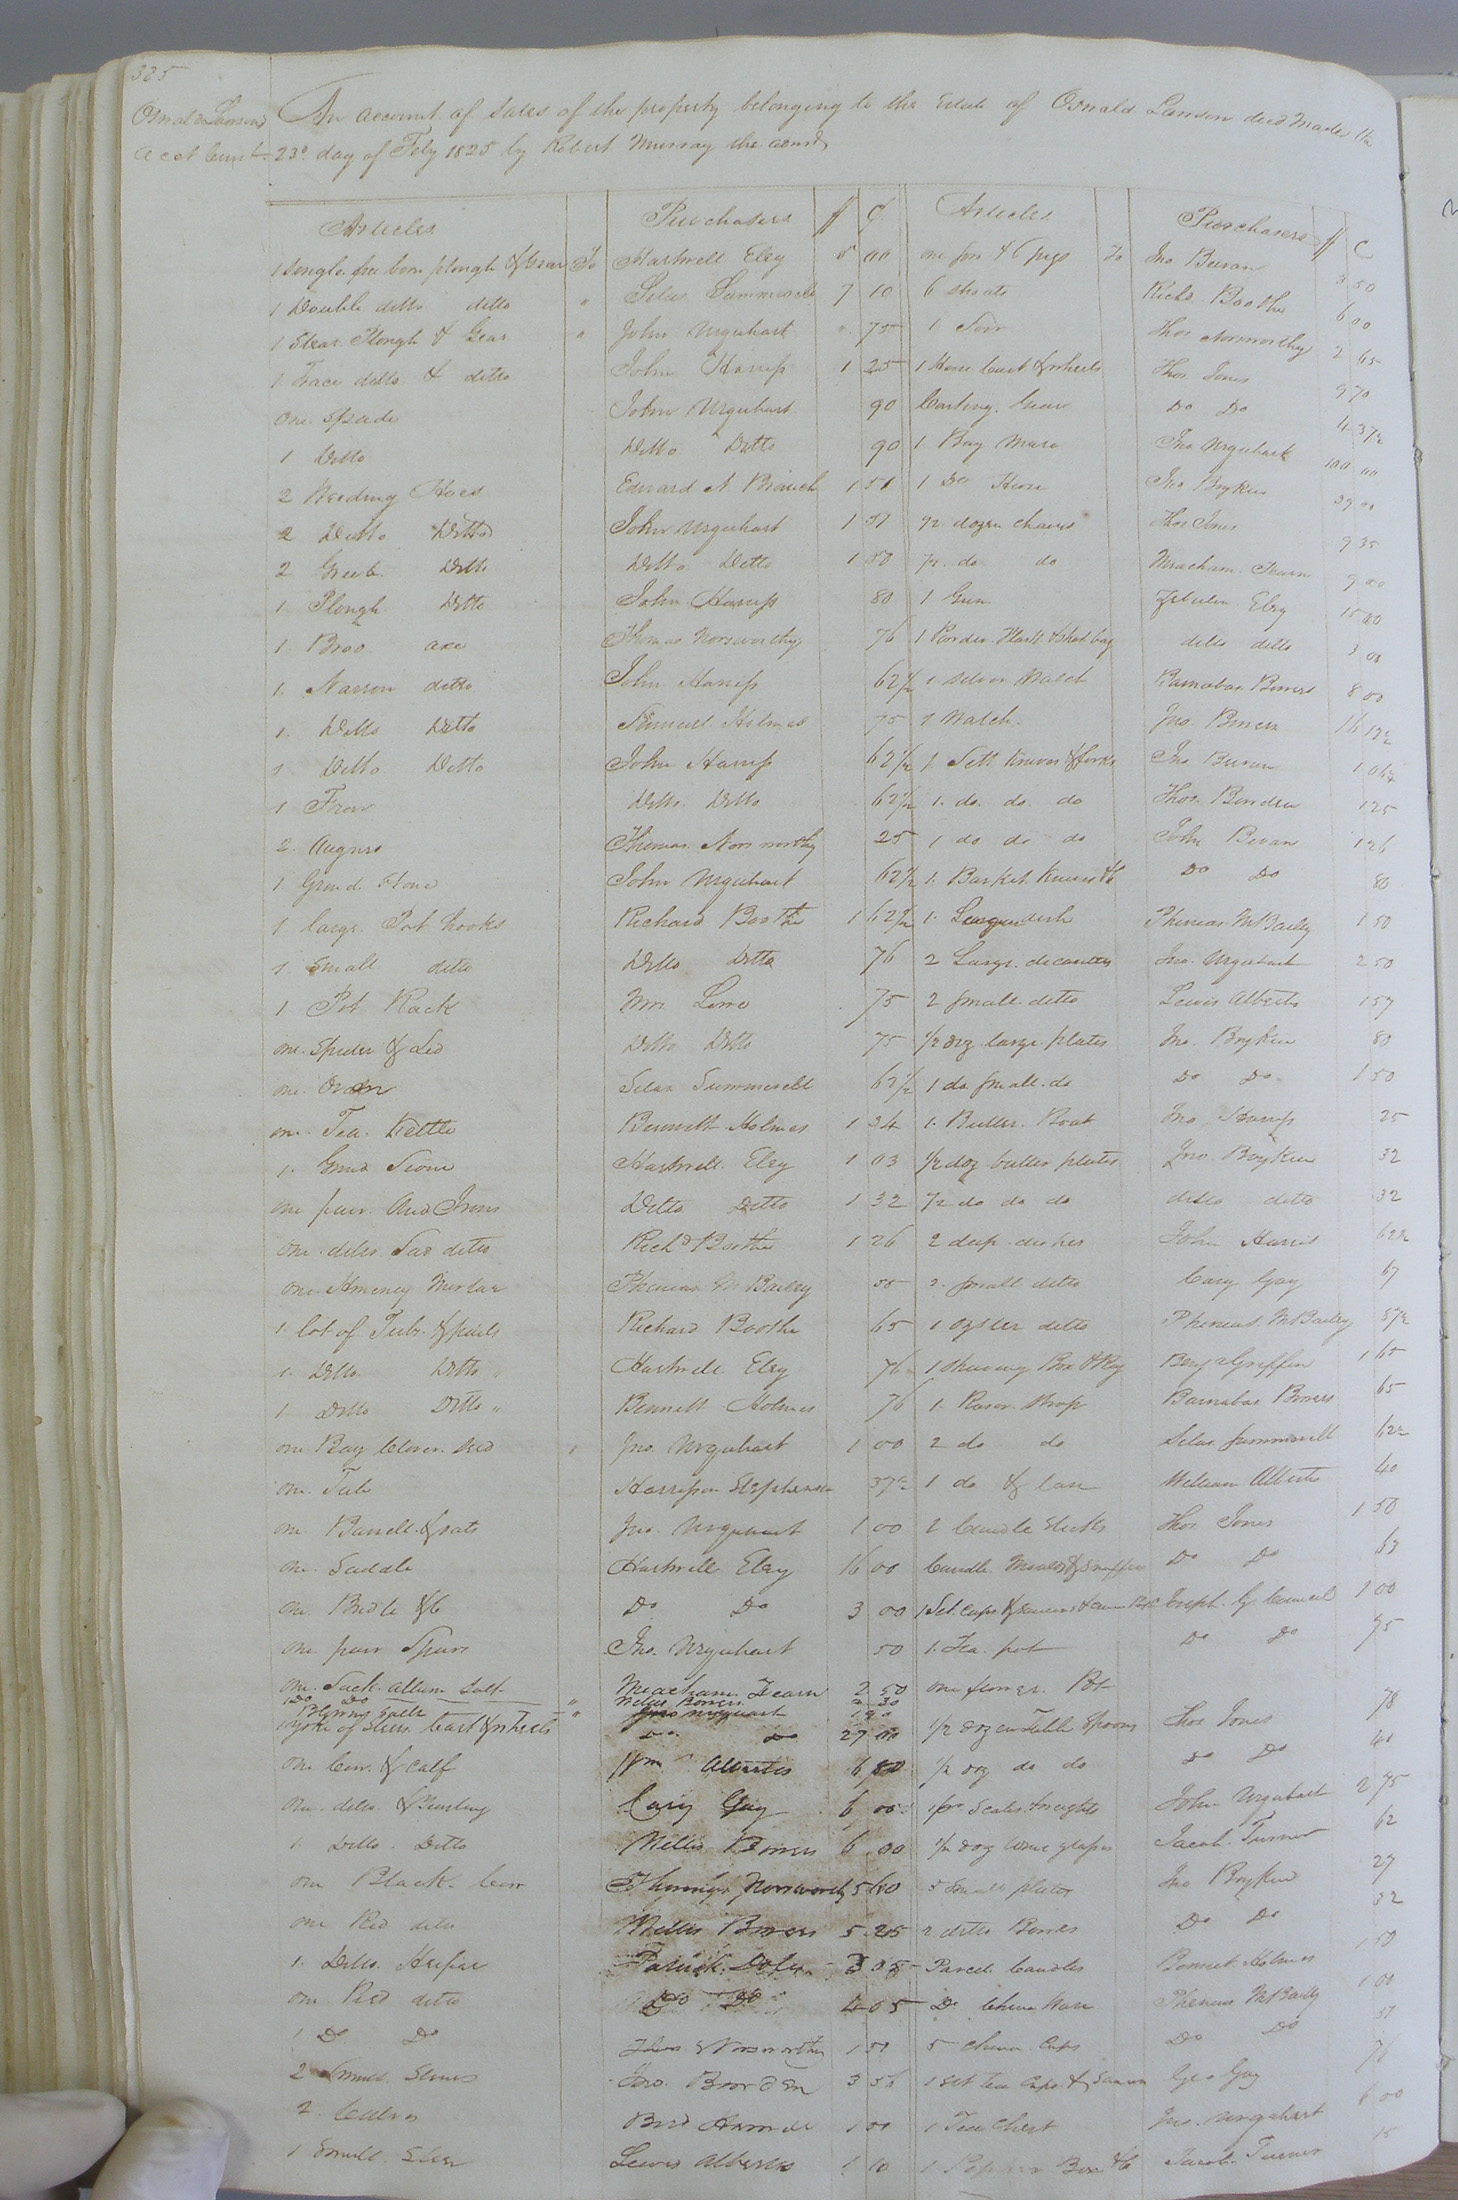 325
Oswald Lawson's An account of Sales of the property belonging to the Estate of Oswald Lawson decd made the
acct Curt 23d day of Feby 1825 by Robert Murray the
Articles Purchasers $ C Articles Purchasers $ C
1 Single plough & Gear To Hartwell Eley 00 one sow & 6 pigs To Jno Bevan 3 50
1 Double ditto ditto " Silas Summerell 7 10 6 shoats Richd Boothe 6 00
1 Plough & Gear " John Urquhart 75 1 Sow Thos Norsworthy 2 65
1 Trace ditto & ditto John Harriss 1 25 1 Horse Cart & wheels Thos Jones 9 70
one Spade John Urquhart 90 Carting Gear Do Do 4 37½
1 Ditto Ditto Ditto 90 1 Bay Mare Jno Urquhart 100 00
2 Weeding Hoes Edward A. Branch 1 51 1 Do Horse Jno Boykin 39 00
2 Ditto Ditto John Urquhart 1 57 ½ dozen chairs Thos Jones 9 35
2 Grub Ditto Ditto Ditto 1 50 ½ do do Meacham Fearn 9 00
1 Plough Ditto John Harriss 80 1 Gun Eley 15 00
1 Broad axe Thomas Norsworthy 76 1 Powder Flask & shot bag ditto ditto 3 00
1 Narrow ditto John Harriss 62½ 1 silver Watch Barnabas Bowers 8 00
1 Ditto Ditto Samuel Holmes 75 1 Watch Jno. Bowers 16 12½
1 Ditto Ditto John Harriss 62½ 1 Sett Knives & forks Jno Bevan 1 06¼
1 Frow Ditto Ditto 62½ 1 do do do Thos. 1 25
2 Augurs Thomas Norsworthy 25 1 do do do John Bevan 1 26
1 Grind Stone John Urquhart 62½ 1 Basket Knives &c Do Do 80
1 large Pot hooks Richard Boothe 1 62½ 1 Large dish Phineas M Bailey 1 50
1 Small ditto Ditto Ditto 76 2 Large decanters Jno. Urquhart 2 50
1 Pot Rack Wm Lowe 75 2 small ditto Lewis Alberts 1 57
one Spider & Led Ditto Ditto 75 ½ doz large plates Jno. Boykin 80
one Oven Silas Summerell 62½ 1 do small do Do Do 1 50
one Tea Kettle Bennett Holmes 1 34 1 Butter Boat Jno Harriss 25
1 Grind Stone Hartwell Eley 1 03 ½ doz butter plates Jno Boykin 32
one pair And Irons Ditto Ditto 1 32 ½ do do do ditto ditto 32
one ditto Sad ditto Richd Boothe 1 26 2 deep dishes John Harris 62½
one Mortar Phineas M Bailey 2 small ditto Cary Gay 67
1 lot of Tubs & pails Richard Boothe 65 1 oyster ditto Phineas M Bailey 87½
1 Ditto Ditto " Hartwell Eley 76 1 shaving Box & Benja Griffin 1 65
1 Ditto Ditto " Bennett Holmes 76 1 Rasor Strop Barnabas Bowers 65
one Bag Clover Seed Jno. Urquhart 1 00 2 do do Silas Summerell 62½
one Tub Harrison Stephenson 37½ 1 do & case William Alberts 40
one Barrell & oats Jno. Urquhart 1 00 2 Candle Sticks Thos Jones 1 50
one Saddle Hartwell Eley 16 00 Candle Moulds & Snuffers Do Do 63
one Bridle &c Do Do 3 00 1 Set cups & saucers & Joseph G. Council 1 00
one pair Spurs Jno. Urquhart 50 1 Tea pot Do Do 75
one Sack allum Salt Meacham Fearn 2 50 one flower Pot
1 Do Do " Bowers 2 30
Salt Jno Urquhart
1 yoke of Steers Cart & wheels " Do Do 27 00 ½ doz Table Spoons Thos Jones 78
one Cow & Calf Wm Alberts 6 50 ½ doz do do Do Do 40
one ditto & Yearling Cary Gay 6 00 1 pr Scales & weights John Urquhart 2 75
1 Ditto Ditto Willis Bowers 6 00 ½ doz wine glasses Jacob Turner 62
one Black Cow Norsworthy 5 60 5 small plates Jno Boykin 27
one Red ditto Willis Bowers 5 25 2 ditto Bowls Do Do 32
1 Ditto Heifer Patrick 3 05 Parcel Candles Bennet Holmes 50
one Pied ditto Do Do 4 05 Do China Ware Phineas M Bailey 1 00
1 Do Do Thos Norsworthy 1 51 5 China Cups Do Do 51
2 Small Steers Jno. 3 56 1 set tea cups & saucers Geo Gay 76
2 Calves 1 50 1 Tea Chest Jno. Urquhart 6 00
1 Small Steer Lewis Alberts 1 10 1 Pepper Box &c Jacob Turner 15